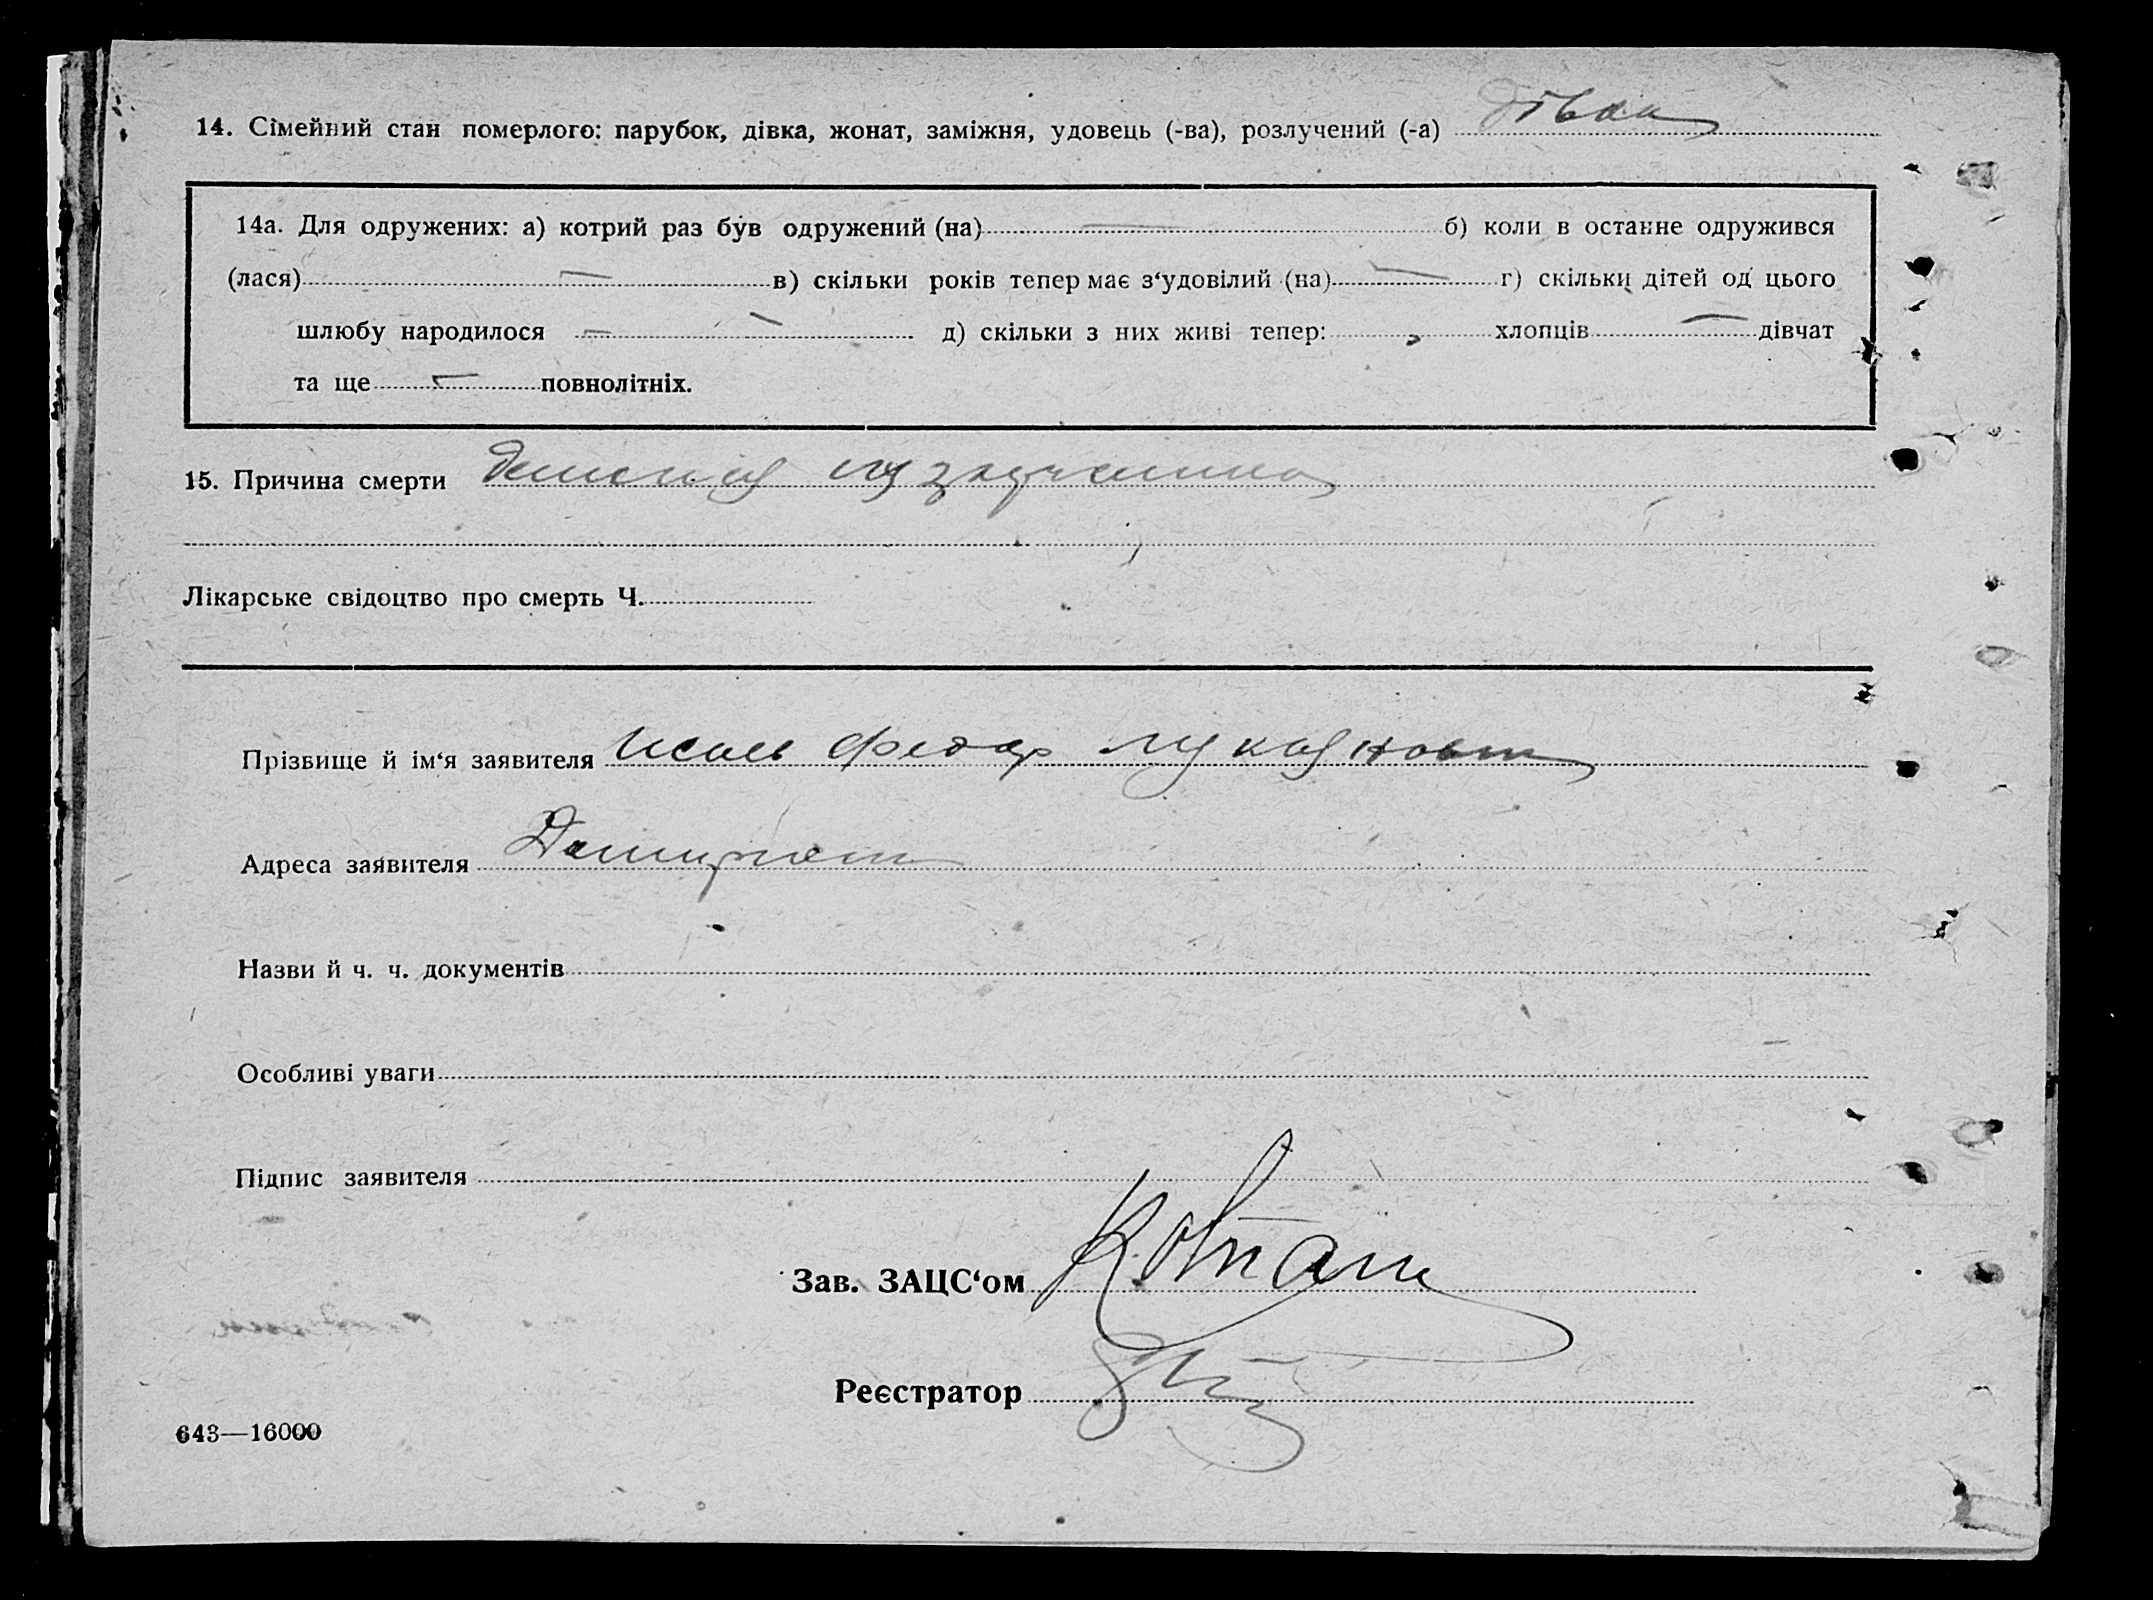 14. Сімейний стан померлого: парубок, дівка, жонат, заміжня, удовець (-ва), розлучений (-а) дівка
14а. Для одружених: а) котрий раз був одружений (на) — б) коли в останне одружився
(лася) — в) скільки років тепер має з‘удовілий (на) — г) скільки дітей од цього
шлюбу народилося — — д) скільки з них живі тепер: хлопців — дівчат
та ще — повнолітніх.
15. Причина смерти
Лікарське свідоцтво про смерть Ч.
Прізвище й ім‘я заявителя Федор
Адреса заявителя
Назви й ч. ч. документів
Особливі уваги
Підпис заявителя
Зав. ЗАЦС‘ом
Реєстратор
643—16000